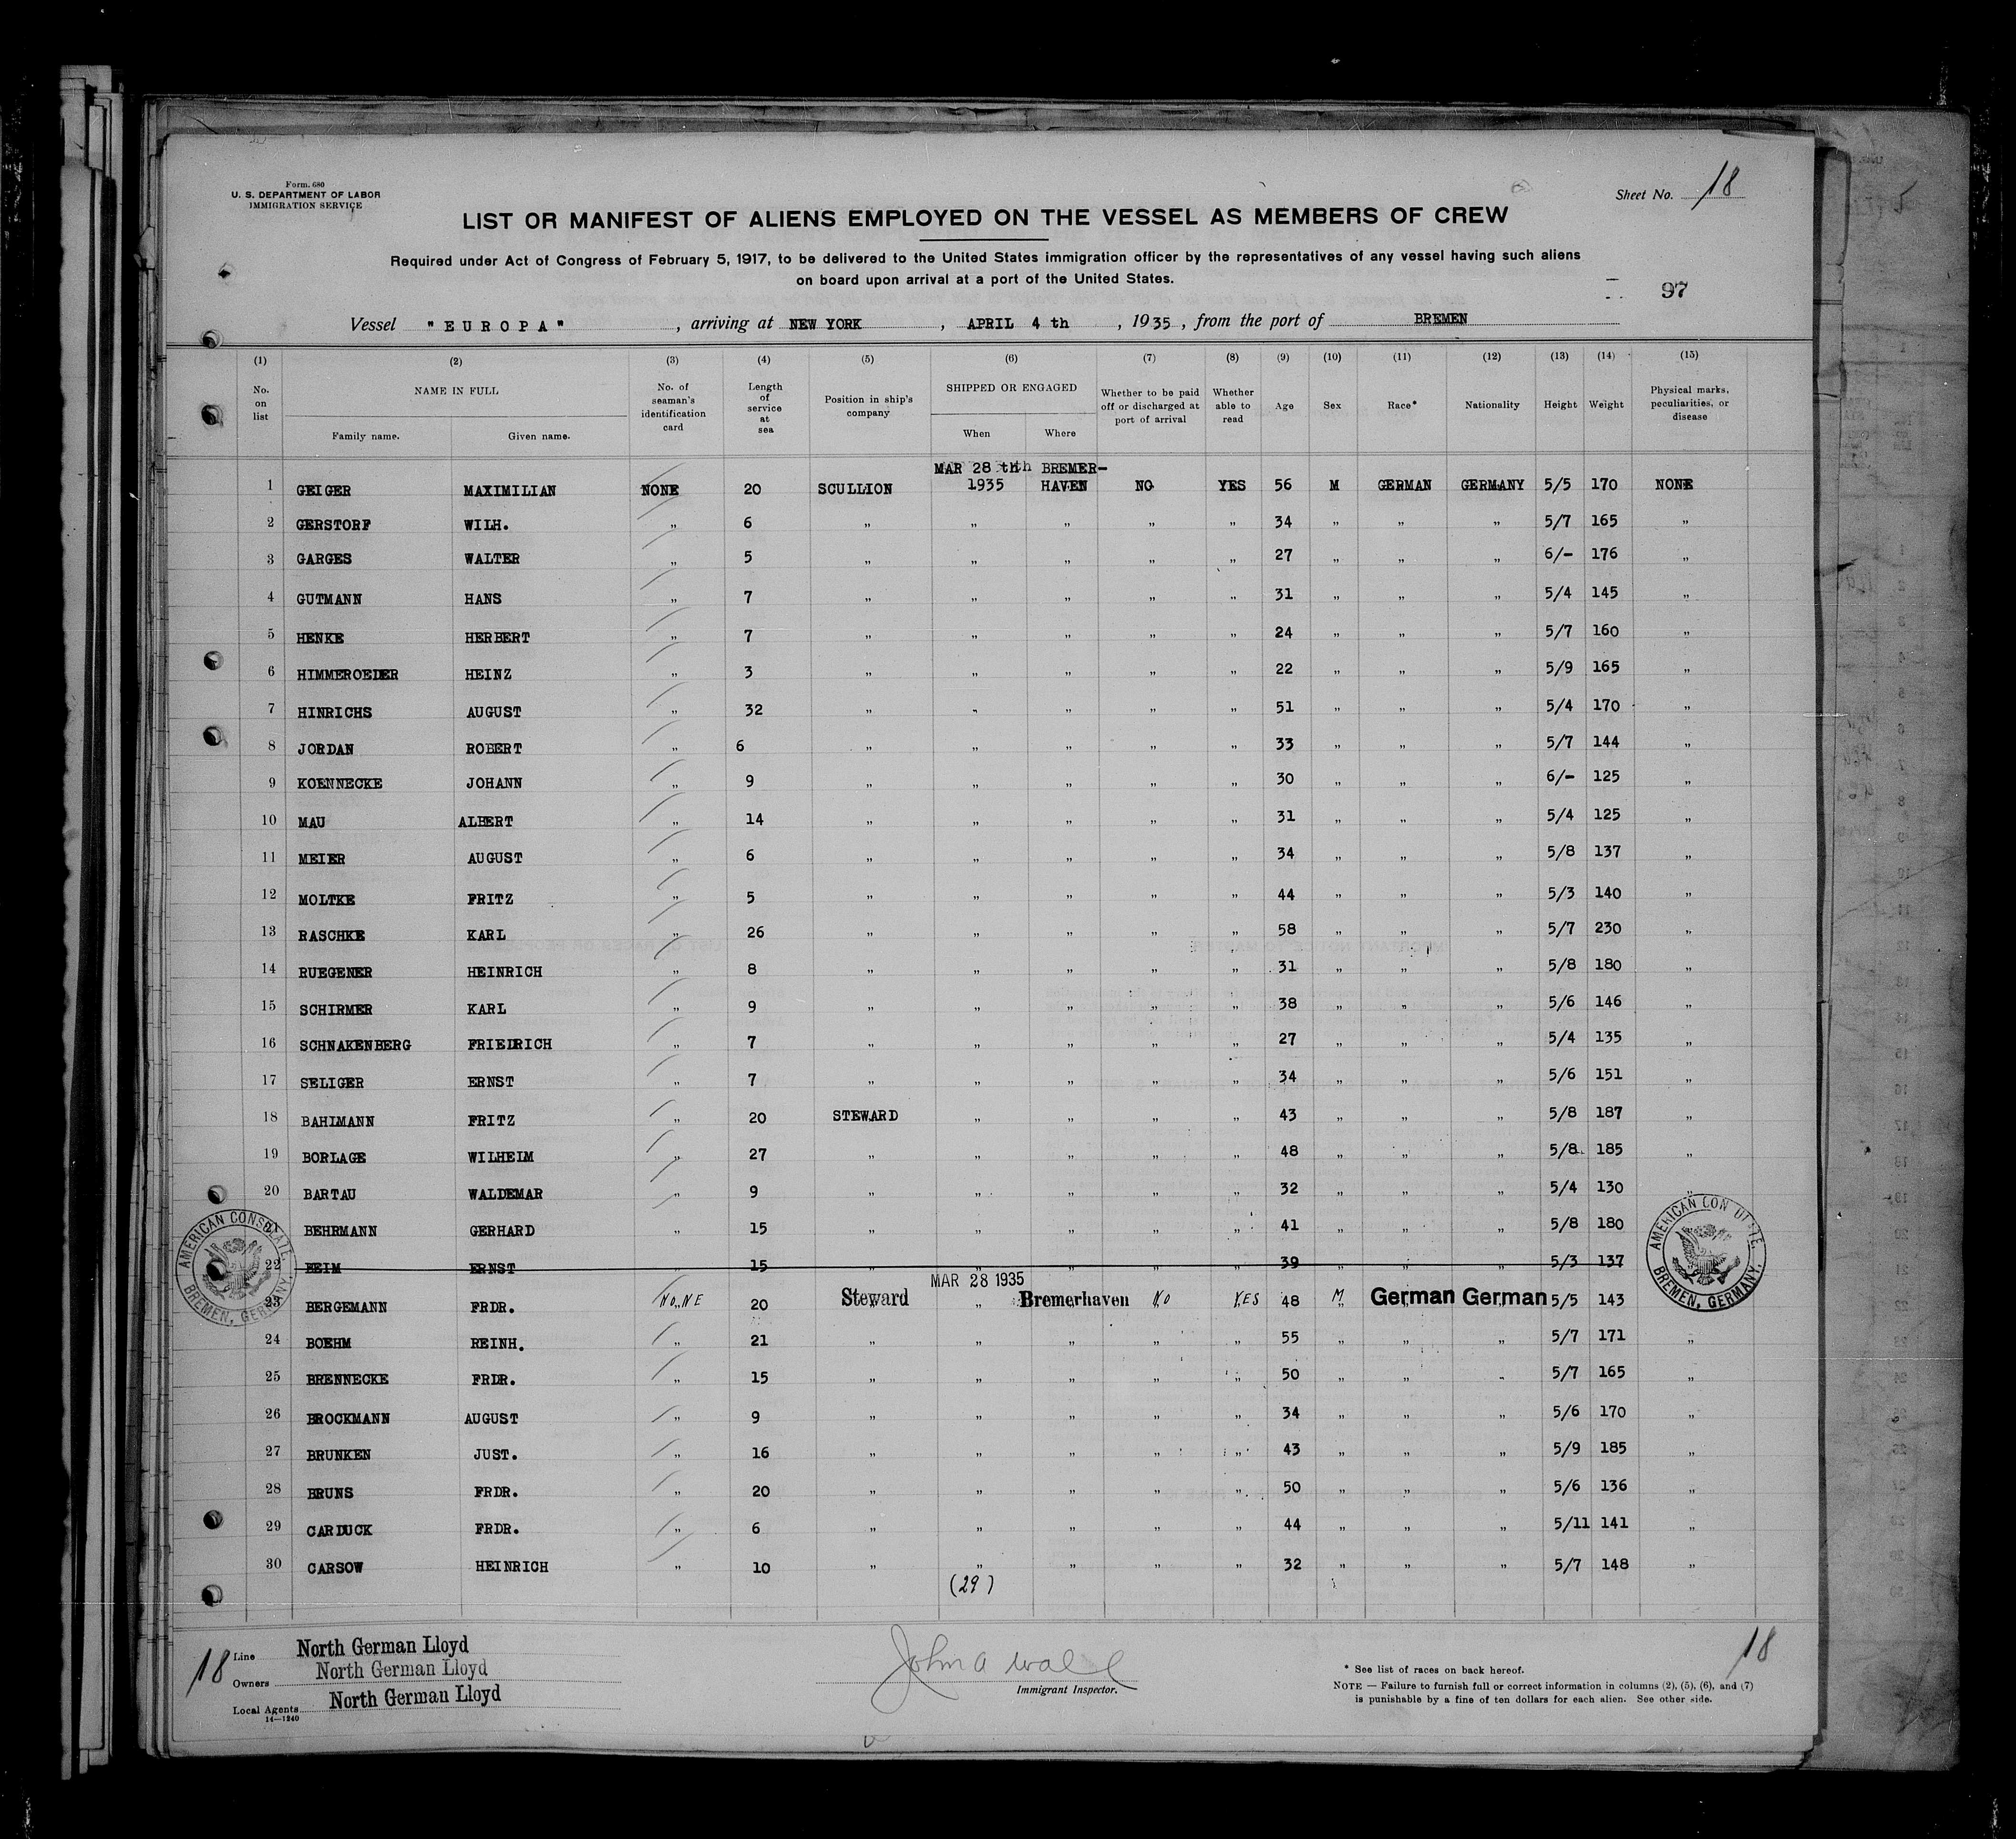 Form. 680
U. S. DEPARTMENT OF LABOR
IMMIGRATION SERVICE
Sheet No. 18
LIST OR MANIFEST OF ALIENS EMPLOYED ON THE VESSEL AS MEMBERS OF CREW
Required under Act of Congress of February 5, 1917, to be delivered to the United States immigration officer by the representatives of any vessel having such aliens
on board upon arrival at a port of the United States.
97
Vessel "EUROPA", arriving at NEW YORK, APRIL 4 th, 1935, from the port of BREMEN
(1) (2) (3) (4) (5) (6) (7) (8) (9) (10) (11) (12) (13) (14) (15)
No. on list NAME IN FULL Family name. Given name. No. of seaman's identification card Length of service at sea Position in ship's company SHIPPED OR ENGAGED When Where Whether to be paid off or discharged at port of arrival Whether able to read Age Sex Race* Nationality Height Weight Physical marks, peculiarities, or disease
MAR 28 th BREMER-
1 GEIGER MAXIMILIAN NONE 20 SCULLION 1935 HAVEN NO YES 56 M GERMAN GERMANY 5/5 170 NONE
2 GERSTORF WILH. " 6 " " " " " 34 " " " 5/7 165 "
3 GARGES WALTER " 5 " " " " " 27 " " " 6/- 176 "
4 GUTMANN HANS " 7 " " " " " 31 " " " 5/4 145 "
5 HENKE HERBERT " 7 " " " " " 24 " " " 5/7 160 "
6 HIMMEROEDER HEINZ " 3 " " " " " 22 " " " 5/9 165 "
7 HINRICHS AUGUST " 32 " " " " " 51 " " " 5/4 170 "
8 JORDAN ROBERT " 6 " " " " " 33 " " " 5/7 144 "
9 KOENNECKE JOHANN " 9 " " " " " 30 " " " 6/- 125 "
10 MAU ALBERT " 14 " " " " " 31 " " " 5/4 125 "
11 MEIER AUGUST " 6 " " " " " 34 " " " 5/8 137 "
12 MOLTKE FRITZ " 5 " " " " " 44 " " " 5/3 140 "
13 RASCHKE KARL " 26 " " " " " 58 " " " 5/7 230 "
14 RUEGENER HEINRICH " 8 " " " " " 31 " " " 5/8 180 "
15 SCHIRMER KARL " 9 " " " " " 38 " " " 5/6 146 "
16 SCHNAKENBERG FRIEDRICH " 7 " " " " " 27 " " " 5/4 135 "
17 SELIGER ERNST " 7 " " " " " 34 " " " 5/6 151 "
18 BAHLMANN FRITZ " 20 STEWARD " " " " 43 " " " 5/8 187 "
19 BORLAGE WILHELM " 27 " " " " " 48 " " " 5/8 185 "
20 BARTAU WALDEMAR " 9 " " " " " 32 " " " 5/4 130 "
21 BEHRMANN GERHARD " 15 " " " " " 41 " " " 5/8 180
22 BEIM ERNST " 15 " " " " " 39 " " " 5/3 137
MAR 28 1935
23 BERGEMANN FRDR. NONE 20 Steward " Bremerhaven NO YES 48 M German German 5/5 143
24 BOEHM REINH. " 21 " " " " " 55 " " " 5/7 171 "
25 BRENNECKE FRDR. " 15 " " " " " 50 " " " 5/7 165 "
26 BROCKMANN AUGUST " 9 " " " " " 34 " " " 5/6 170 "
27 BRUNKEN JUST. " 16 " " " " " 43 " " " 5/9 185 "
28 BRUNS FRDR. " 20 " " " " " 50 " " " 5/6 136 "
29 CARDUCK FRDR. " 6 " " " " " 44 " " " 5/11 141 "
30 CARSOW HEINRICH " 10 " " " " " 32 " " " 5/7 148 "
(29)
AMERICAN CONSULATE, BREMEN, GERMANY.
AMERICAN CONSULATE, BREMEN, GERMANY.
18
Line North German Lloyd
Owners North German Lloyd
Local Agents North German Lloyd
14—1240
John A Wall
Immigrant Inspector.
18
* See list of races on back hereof.
NOTE — Failure to furnish full or correct information in columns (2), (5), (6), and (7)
is punishable by a fine of ten dollars for each alien. See other side.